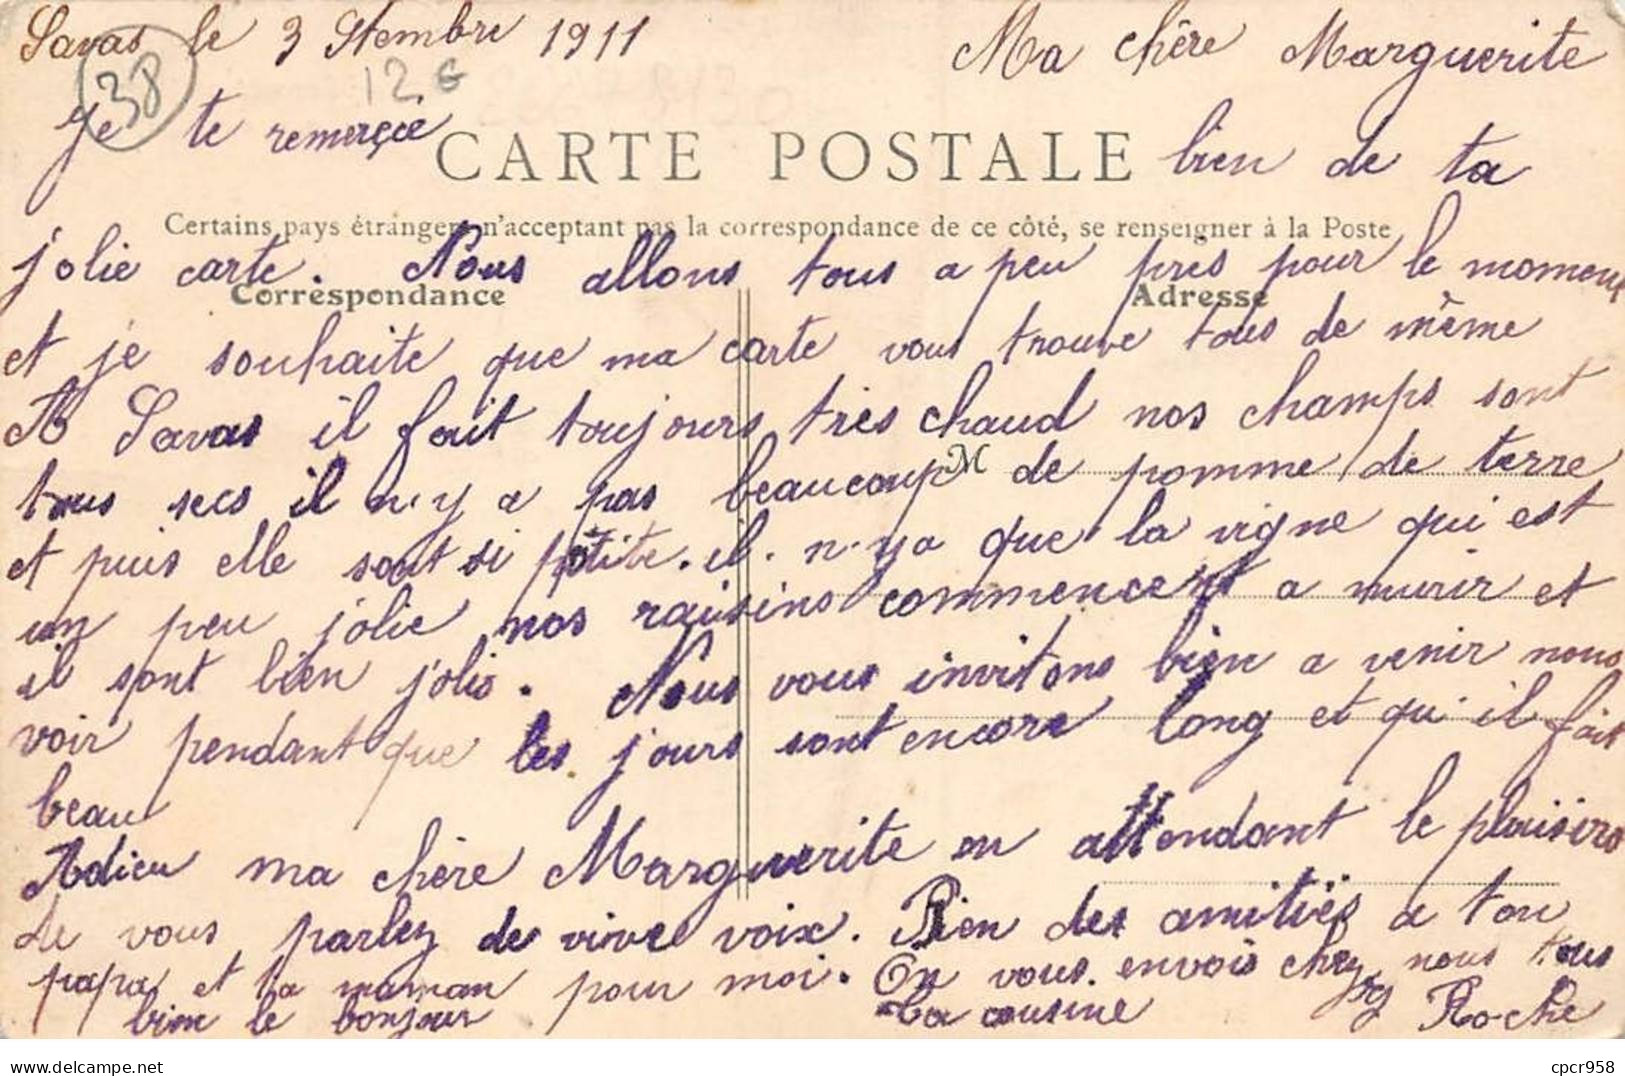 Savas le 3 Stembre 1911 Ma chère Marguerite
38
12 €
Je te remerçie bien de ta
CARTE POSTALE
Certains pays étrangers n'acceptant pas la correspondance de ce côté, se renseigner à la Poste
jolie carte. Nous allons tous a peu pres pour le moment
Correspondance Adresse
et je souhaite que ma carte vous trouve tous de même
A Savas il fait toujours très chaud nos champs sont
M
tous secs il n'y a pas beaucoup de pomme de terre
et puis elle sont si petite. il. n'ya que la vigne qui est
un peu jolie nos raisins commencent a murir et
il sont bien jolis. Nous vous invitons bien a venir nous
voir pendant que les jours sont encore long et qu'il fait
beau
Adieu ma chère Marguerite en attendant le plaisire
de vous parlez de vive voix. Bien des amitiés a ton
papa et ta maman pour moi. On vous envois chez nous tous
bien le bonjour ta cousine Roche
cpcr958